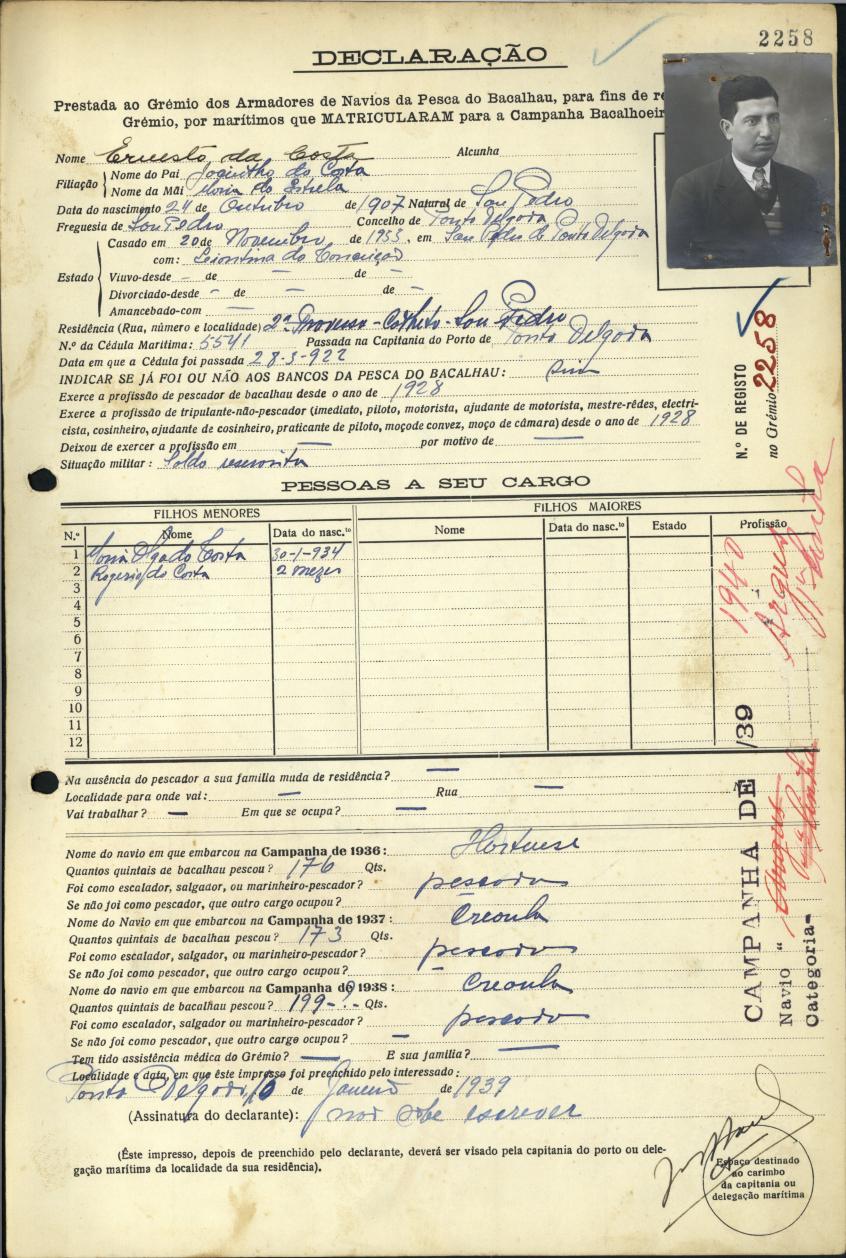 2258
DECLARAÇÃO
Prestada ao Grémio dos Armadores de Navios da Pesca do Bacalhau, para fins de re
Grémio, por marítimos que MATRICULARAM para a Campanha Bacalhoeir
Nome Ernesto da Costa Alcunha
Filiação Nome do Pai Jacintho da Costa
Nome da Mãi Maria da Estrela
Data do nascimento 24 de Outubro de 1907 Natural de San Pedro
Freguesia de San Pedro Concelho de Ponta Delgada
Estado Casado em 20 de Novembro de 1933, em San Pedro de Ponta Delgada
com: da Conceição
Viuvo-desde - de - de -
Divorciado-desde - de - de -
Amancebado-com -
Residência (Rua, número e localidade) 2ª - Calheta - San Pedro
N.º da Cédula Marítima: 5541 Passada na Capitania do Porto de Ponta Delgada
Data em que a Cédula foi passada 28-3-922
INDICAR SE JÁ FOI OU NÃO AOS BANCOS DA PESCA DO BACALHAU: Sim
Exerce a profissão de pescador de bacalhau desde o ano de 1928
Exerce a profissão de tripulante-não-pescador (imediato, piloto, motorista, ajudante de motorista, mestre-rêdes, electri-
cista, cosinheiro, ajudante de cosinheiro, praticante de piloto, moço de convez, moço de câmara) desde o ano de 1928
Deixou de exercer a profissão em — por motivo de —
Situação militar: Soldo reservista
N.º DE REGISTO
no Grémio 2258
PESSOAS A SEU CARGO
FILHOS MENORES FILHOS MAIORES
N.º Nome Data do nasc.to Nome Data do nasc.to Estado Profissão
1 Maria Olga da Costa 30-1-934
2 Rogerio da Costa 2 mezes
3
4
5
6
7
8
9
10
11
12
1940
Argus
CAMPANHA DE /39
Navio "
Categoria-
Na ausência do pescador a sua família muda de residência? —
Localidade para onde vai: — Rua — N.
Vai trabalhar? — Em que se ocupa? —
Nome do navio em que embarcou na Campanha de 1936: Hortense
Quantos quintais de bacalhau pescou? 176 Qts.
Foi como escalador, salgador, ou marinheiro-pescador? pescador
Se não foi como pescador, que outro cargo ocupou? —
Nome do Navio em que embarcou na Campanha de 1937: Creoula
Quantos quintais de bacalhau pescou? 173 Qts.
Foi como escalador, salgador, ou marinheiro-pescador? pescador
Se não foi como pescador, que outro cargo ocupou? —
Nome do navio em que embarcou na Campanha de 1938: Creoula
Quantos quintais de bacalhau pescou? 199-?- Qts.
Foi como escalador, salgador ou marinheiro-pescador? pescador
Se não foi como pescador, que outro cargo ocupou? —
Tem tido assistência médica do Grémio? — E sua família? —
Localidade e data, em que êste impresso foi preenchido pelo interessado:
Ponta Delgada, de Janeiro de 1939
(Assinatura do declarante): nao sabe escrever
(Êste impresso, depois de preenchido pelo declarante, deverá ser visado pela capitania do porto ou dele-
gação marítima da localidade da sua residência).
Espaço destinado
ao carimbo
da capitania ou
delegação marítima